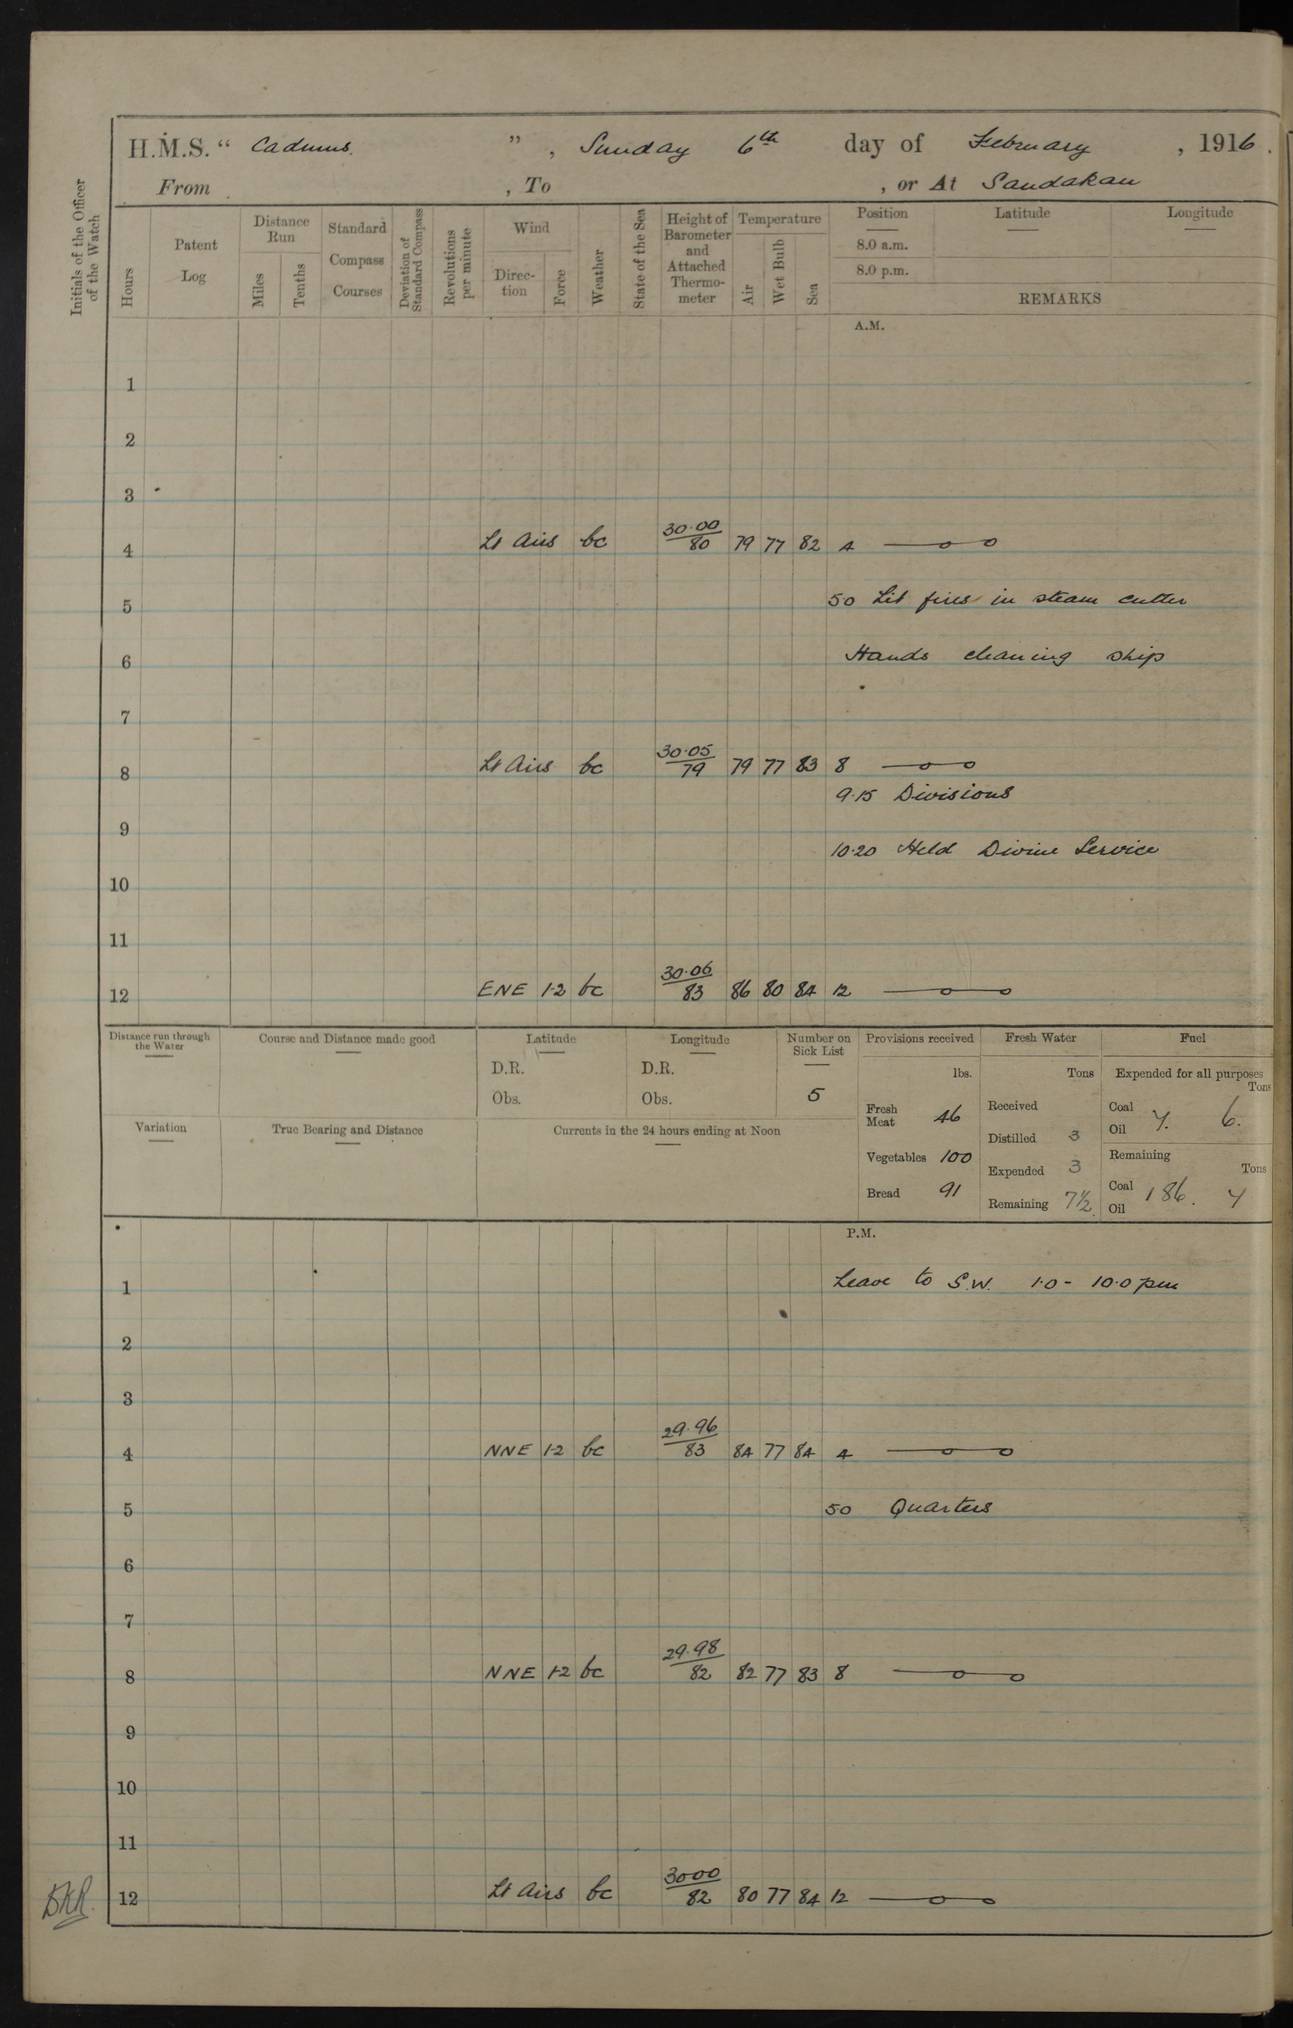 H.M.S. “ Cadmus ” , Sunday 6th day of February , 1916 .
From , To , or At Sandakan
Initials of the Officer of the Watch
Hours
Patent Log
Distance Run
Miles
Tenths
Standard Compass Courses
Deviation of Standard Compass
Revolutions per minute
Wind
Direction
Force
Weather
State of the Sea
Height of Barometer and Attached Thermometer
Temperature
Air
Wet Bulb
Sea
Position Latitude Longitude
8.0 a.m.
8.0 p.m.
REMARKS
A.M.
1
2
3
4 Lt Airs bc 30.00/80 79 77 82 4
5 5.0 Lit fires in steam cutter
6 Hands cleaning ship
7
8 Lt Airs bc 30.05/79 79 77 83 8
9.15 Divisions
9
10.20 Held Divine Service
10
11
12 ENE 1-2 bc 30.06/83 86 80 84 12
Distance run through the Water
Course and Distance made good
Latitude
D.R.
Obs.
Longitude
D.R.
Obs.
Number on Sick List
5
Variation
True Bearing and Distance
Currents in the 24 hours ending at Noon
Provisions received
lbs.
Fresh Meat 46
Vegetables 100
Bread 91
Fresh Water
Tons
Received
Distilled 3
Expended 3
Remaining 7½
Fuel
Expended for all purposes
Tons
Coal
Oil 6.
Remaining
Tons
Coal
Oil 186.
P.M.
1 Leave to S.W. 1.0 - 10.0 pm
2
3
4 NNE 1-2 bc 29.96/83 84 77 84 4
5 5.0 Quarters
6
7
8 NNE 1-2 bc 29.98/82 82 77 83 8
9
10
11
12 Lt Airs bc 30.00/82 80 77 84 12